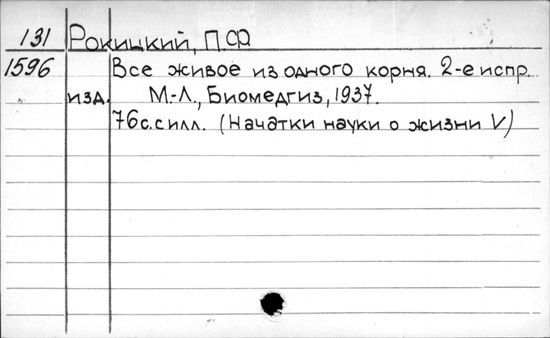 131 Рокицкий, П.Ф.
1596 Все живое из одного корня. 2-е испр.
изд. М.-Л., Биомедгиз, 1937.
76с.с илл. (Начатки науки о жизни V)